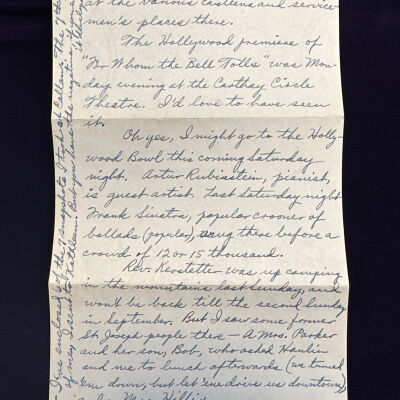 at the various canteens and service-
men's places there.
The Hollywood premiere of
"For Whom the Bell Tolls" was Mon-
day evening at the Carthay Circle
Theatre. I'd love to have seen
it.
Oh yes, I might go to the Holly-
wood Bowl this coming Saturday
night. Artur Rubinstein, pianist,
is guest artist. Last Saturday night
Frank Sinatra, popular crooner of
ballads (popular), sang there before a
crowd of 12 or 15 thousand.
Rev. Kerstetter was up camping
in the mountains last Sunday, and
won't be back till the second Sunday
in September. But I saw some former
St. Joseph people there — A Mrs. Parker
and her son, Bob, who asked
and me to lunch afterwards (we turned
'em down, but let 'em drive us downtown)
Mrs.
I've enclosed 6 of the 7 snapshots I